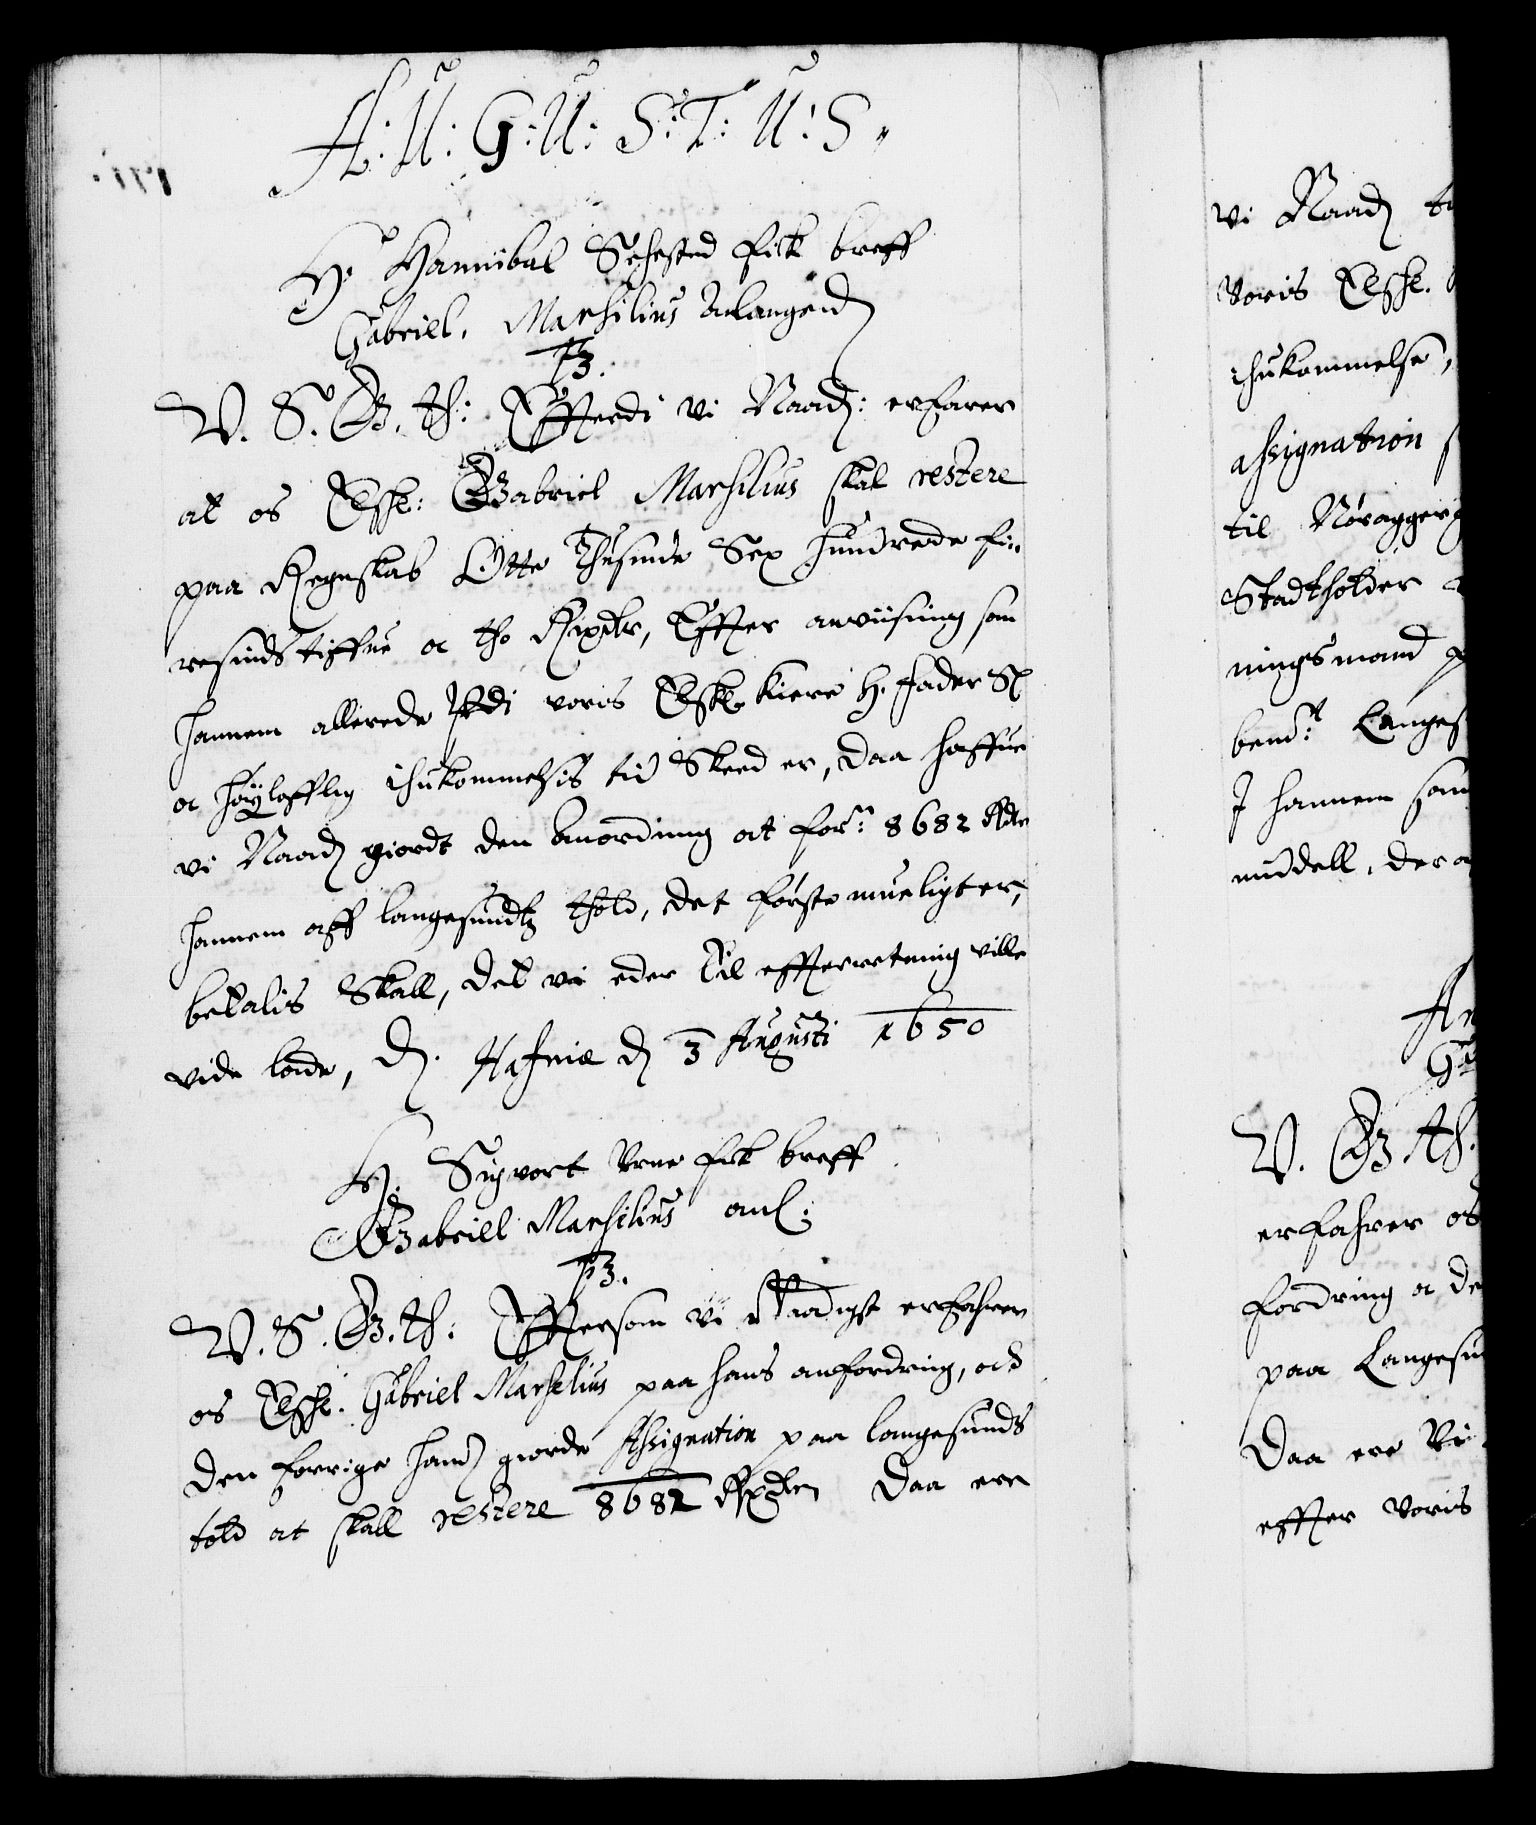 A: U: G: U: S: T: U: S.
H. Hannibal Sehested fick breff
Gabriel. Marsilius Anlangend
V. S. G. th: Efterdi vi Naad: erfarer
at os Elskl: Gabriel Marsilius skal restere
paa Regnskab Otte Thusinde Sex hundrede fi„
resindstiffue oc tho Rixdlr, Effter anviisning som
hannem allerede J voris Elskl. kiere H. Fader Sl
oc høyloffligh ihukommelsis tid Skeed er, daa haffue
vi Naad giordt den Anordning at for.ne 8682 Rdlr
hannem aff Langesundtz thold, det første mueligt er,
betalis Skall, det vi eder til effterretning ville
vide lade, D. Hafniæ d 3 Augusti 1650
H. Sigvort Urne fik breff
Gabriell Marsilius anl:
V. S. G. th: Effttersom vi Naadigst erfahrer
os Elskl. Gabriel Marselius paa hans anfordring, och
den forrige hand giorde Assignation paa Langesunds
told at skall restere 8682 Rixdlr Daa ere
vi Naad
voris Elskl.
ihukommelse,
assignation
til
Stadtholder
ningsmand
bend.t Langes
J hannem som
middell, der
An
V. G. th.
erfahrer os
fordring oc de
paa Langesu
Daa ere Vi
effter voris